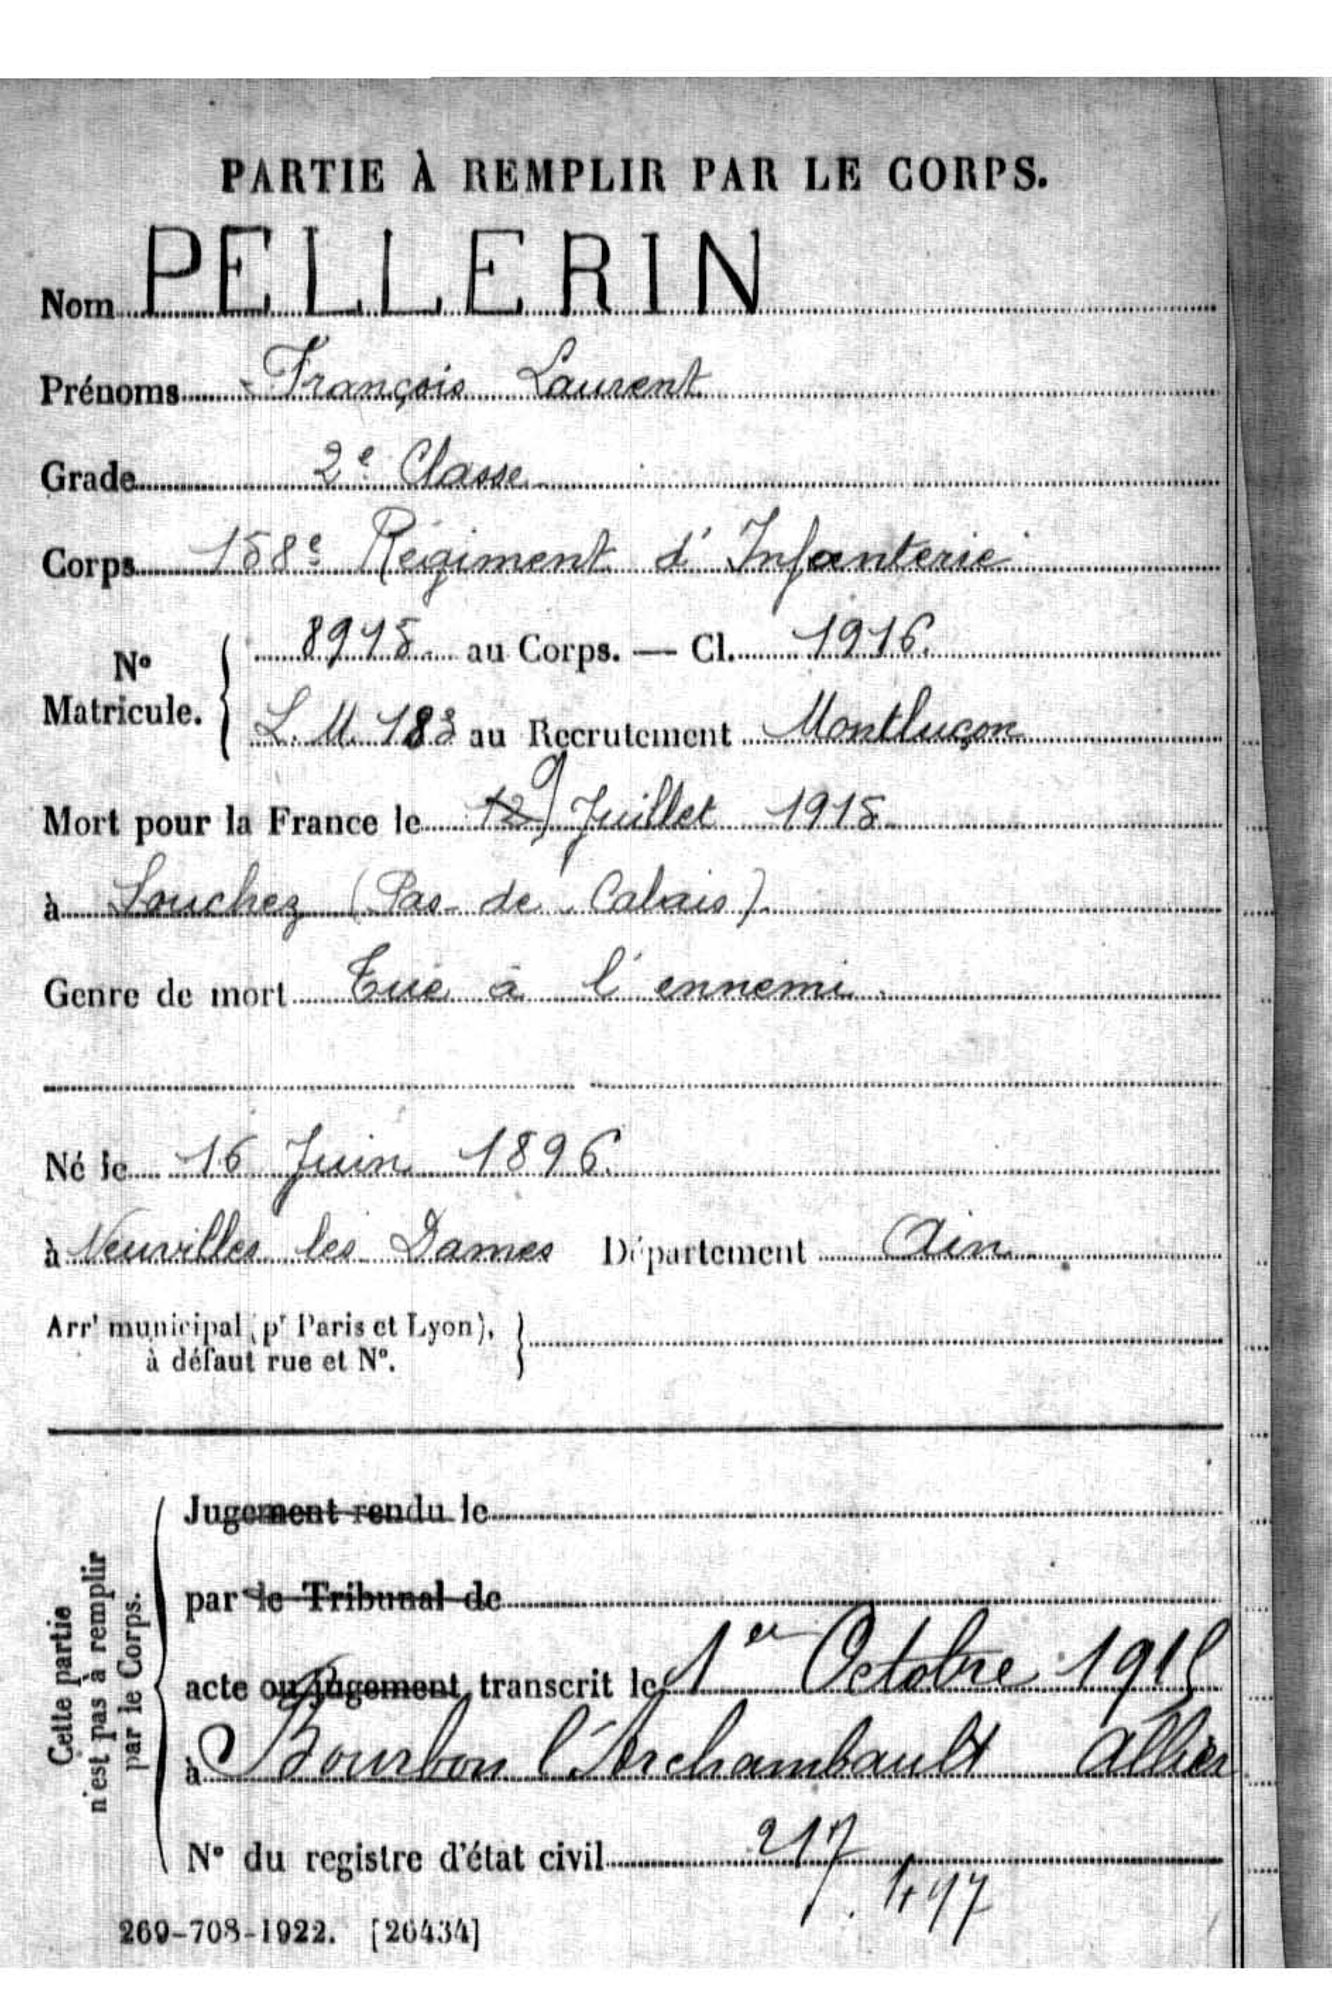 PARTIE À REMPLIR PAR LE CORPS.
Nom PELLERIN
Prénoms François Laurent
Grade 2e Classe
Corps 158e Régiment d'Infanterie
N° Matricule. 8915 au Corps. — Cl. 1916.
L. M. 183 au Recrutement Montluçon
Mort pour la France le 12 9 Juillet 1915
à Souchez (Pas de Calais)
Genre de mort Tué à l'ennemi.
Né le 16 Juin 1896.
à Neuvilles les Dames Département Ain
Arrt municipal (pr Paris et Lyon),
à défaut rue et N°.
Cette partie
n'est pas à remplir
par le Corps.
Jugement rendu le
par le Tribunal de
acte ou jugement transcrit le 1er Octobre 1915
à Bourbon l'Archambault Allier
N° du registre d'état civil 217
269-708-1922. [26434]